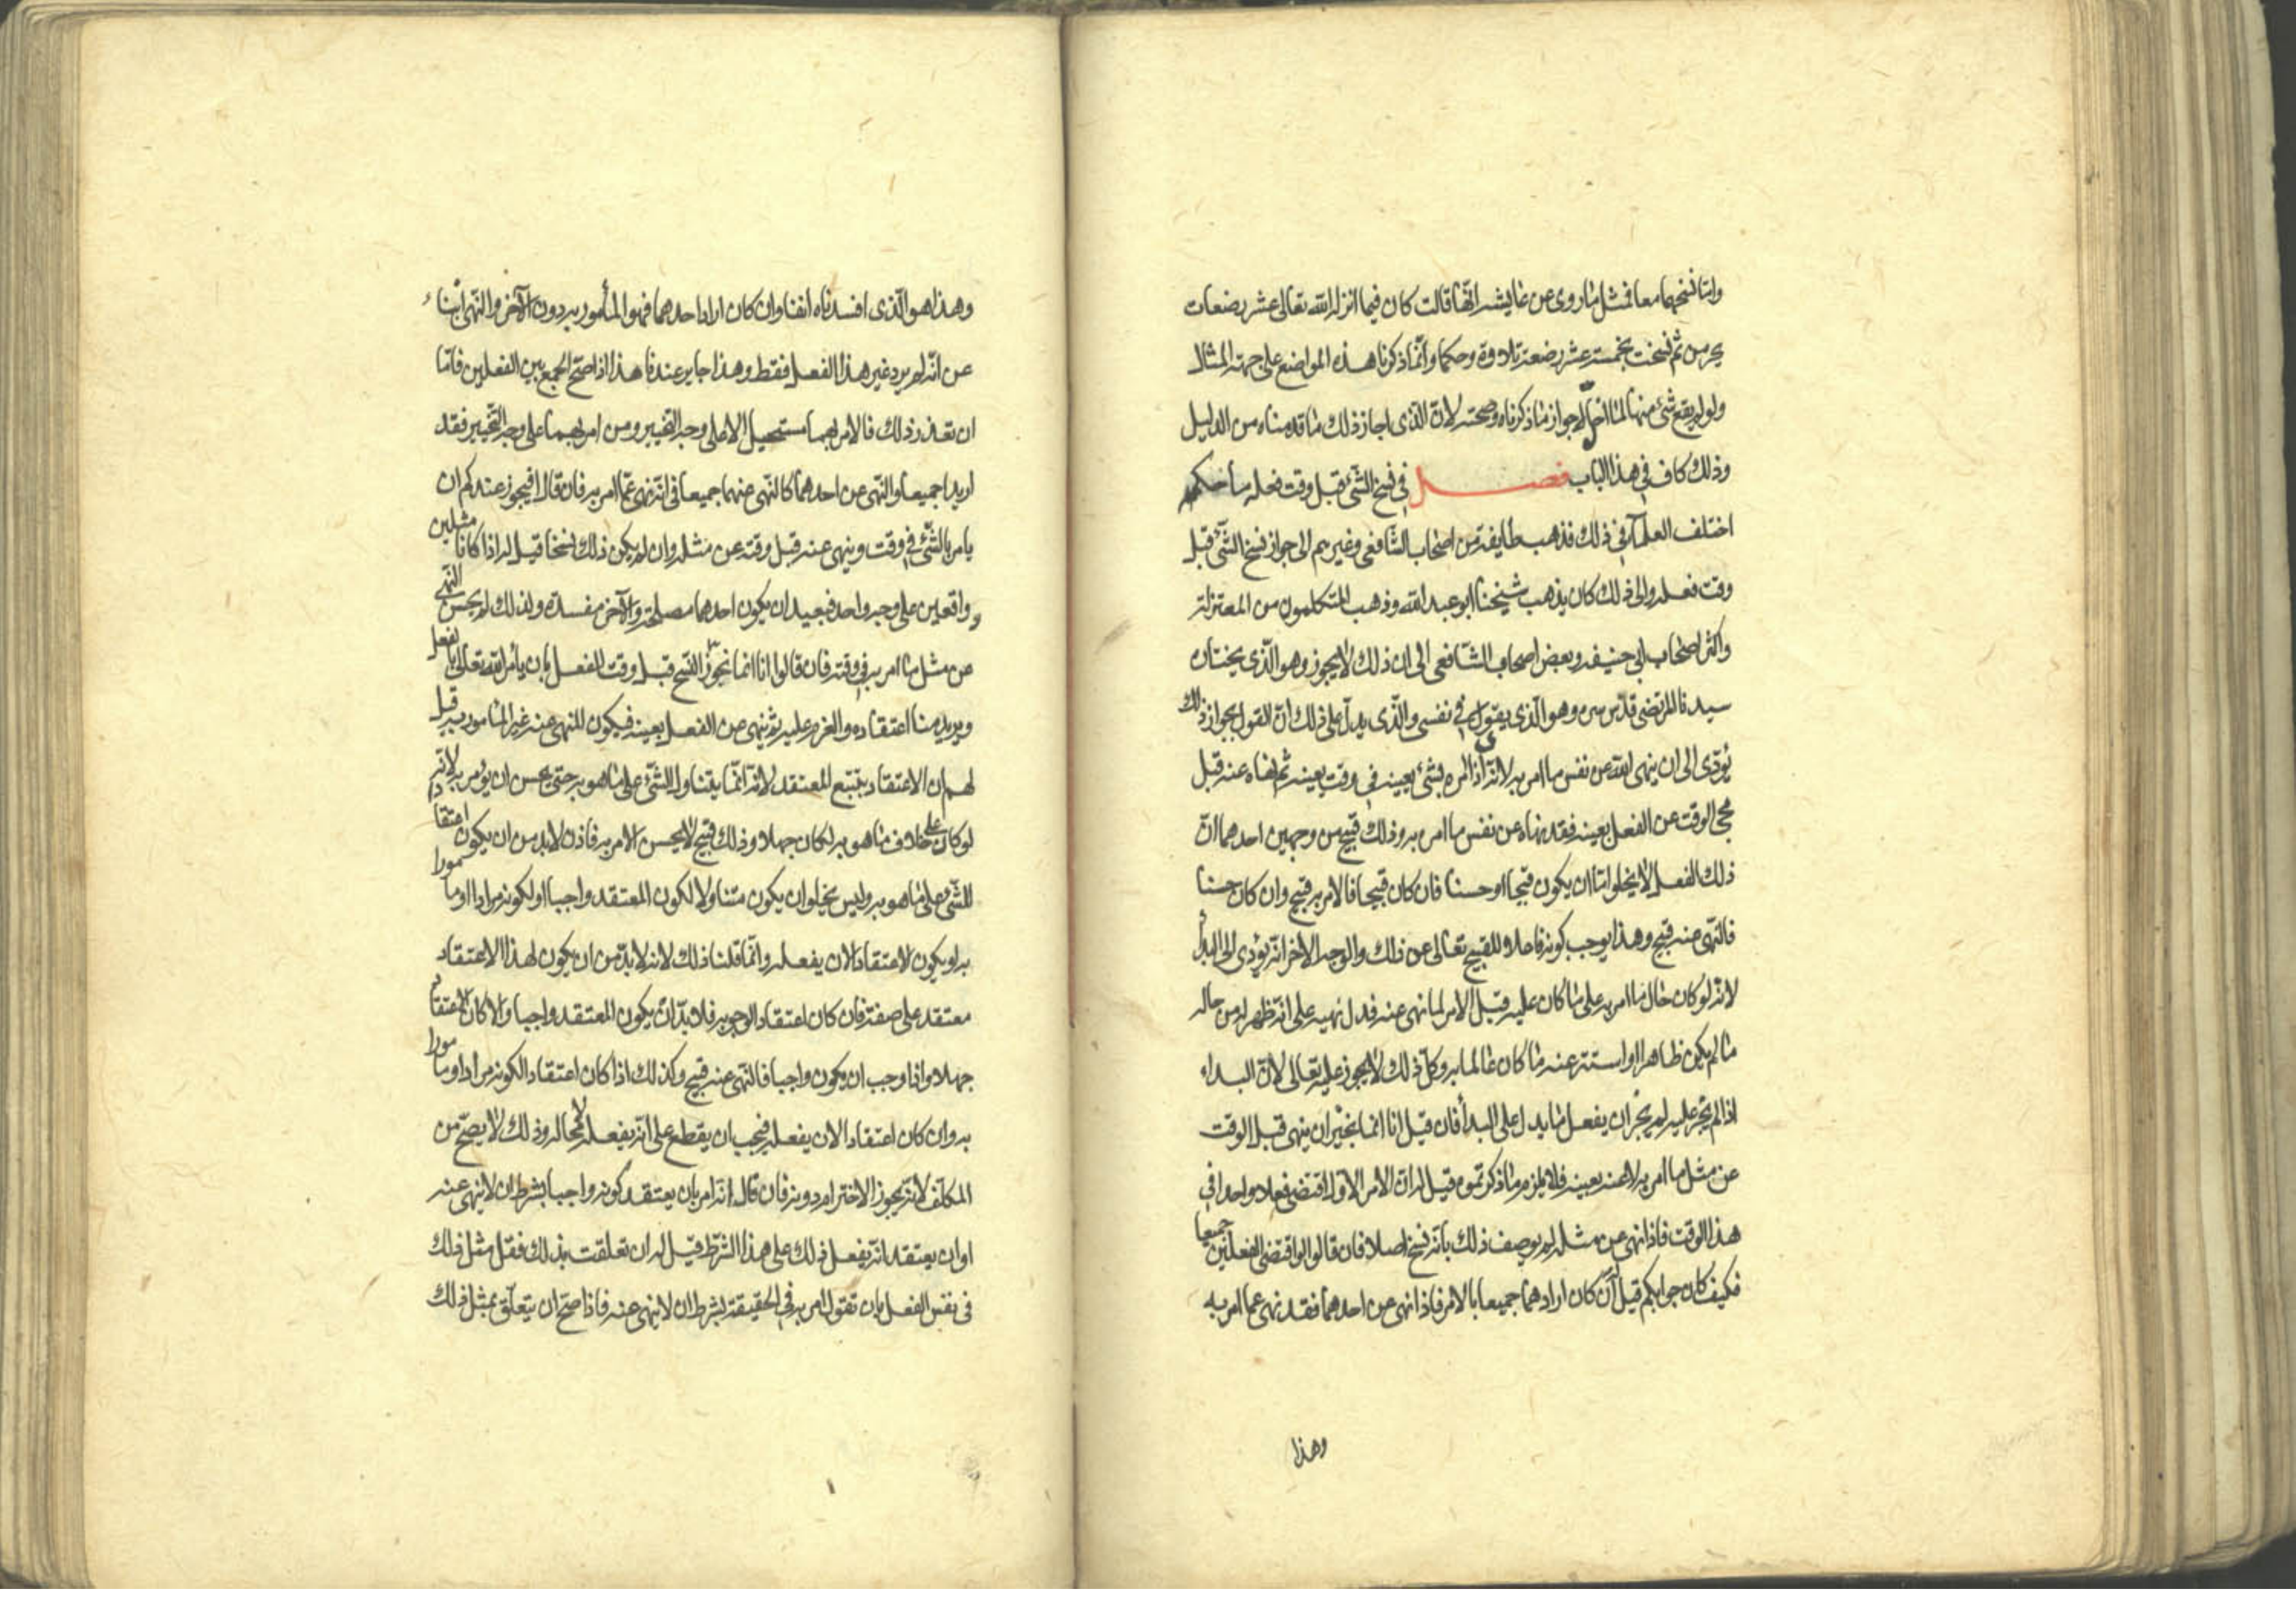 واما نسخهما معا فمثل ما روى عن عايشه انها قالت كان فيما انزله الله تعالى عشر رضعات
يحرمن ثم نسخت بخمسة عشر رضعة تلاوة وحكما وانما ذكرنا هذه المواضع على جهة المثال
ولو لم يقع شئ منها لما اخل بجواز ما ذكرناه وصحته لان الذى اجاز ذلك ما قدمناه من الدليل
وذلك كاف فى هذا الباب فصل فى نسخ الشئ قبل وقت فعله ما حكمه
اختلف العلماء فى ذلك فذهب طايفة من اصحاب الشافعى وغيرهم الى جواز نسخ الشئ قبل
وقت فعله والى ذلك كان يذهب شيخنا ابو عبد الله وذهب المتكلمون من المعتزلة
واكثر اصحاب ابى حنيفه وبعض اصحاب الشافعى الى ان ذلك لا يجوز وهو الذى يختاره
سيدنا المرتضى قدس سره وهو الذى يقوى فى نفسى والذى يدل على ذلك ان القول بجواز ذلك
يؤدى الى ان ينهى الله عن نفس ما امر به لانه اذا امره بشئ بعينه فى وقت بعينه ثم نهاه عنه قبل
مجئ الوقت عن الفعل بعينه فقد نهاه عن نفس ما امره به وذلك قبيح من وجهين احدهما ان
ذلك الفعل لا يخلوا اما ان يكون قبيحا او حسنا فان كان قبيحا فالامر به قبيح وان كان حسنا
فالنهى عنه قبيح وهذا يوجب كونه فاعلا للقبيح تعالى عن ذلك والوجه الاخر انه يؤدى الى البدأ
لانه لو كان حال ما امر به على ما كان عليه قبل الامر لما نهى عنه فدل نهيه على انه ظهر له من حاله
ما لم يكن ظاهرا او استتر عنه ما كان عالما به وكل ذلك لا يجوز عليه تعالى لان البداء
اذا لم يجز عليه لم يجز ان يفعل ما يدل على البدأ فان قيل انا انما نجيز ان ينهى قبل الوقت
عن مثل ما امر به لا عنه بعينه فلا يلزم ما ذكرتموه قيل له ان الامر الاول اقتضى فعلا واحدا فى
هذا الوقت فاذا نهى عن مثله لم يوصف ذلك بأنه نسخ اصلا فان قالوا لو اقتضى الفعلين جميعا
فكيف كان جوابكم قيل له ان كان ارادهما جميعا بالامر فاذا نهى عن احدهما فقد نهى عما امر به
وهذا
وهذا هو الذى افسدناه انفا وان كان اراد احدهما فهو المأمور به دون الآخر والنهى أنباء
عن انه لم يرد غير هذا الفعل فقط وهذا جايز عندنا هذا اذا صح الجمع بين الفعلين فاما
ان تعذر ذلك فالامر بهما مستحيل الا على وجه التخيير ومن امر بهما على وجه التخيير فقد
اريدا جميعا والنهى عن احدهما كالنهى عنهما جميعا فى انه نهى عما امر به فان قال افيجوز عندكم ان
يامر بالشئ فى وقت وينهى عنه قبل وقته عن مثله وان لم يكن ذلك نسخا قيل له اذا كانا مثلين
وواقعين على وجه واحد فبعيد ان يكون احدهما مصلحة والآخر مفسدة ولذلك لم يحسن النهى
عن مثل ما امر به فى وقته فان قالوا انا انما نجوز النسخ قبل وقت الفعل بان يأمر الله تعالى بالفعل
ويريد منا اعتقاده والعزم عليه ثم ينهى عن الفعل بعينه فيكون المنهى عنه غير المأمور به قيل
لهم ان الاعتقاد يتبع المعتقد لانه انما يتناول الشئ على ما هو به حتى يحسن ان يؤمر به لانه
لو كان على خلاف ما هو به لكان جهلا وذلك قبيح لا يحسن الامر به فاذن لا بد من ان يكون اعتقادا
للشئ على ما هو به وليس يخلو ان يكون متناولا لكون المعتقد واجبا او لكونه مرادا او مأمورا
به او يكون لاعتقاد الان يفعله وانما قلنا ذلك لانه لا بد من ان يكون لهذا الاعتقاد
معتقد على صفة فان كان اعتقاد الوجوبه فلا بد ان يكون المعتقد واجبا والا كان الاعتقاد
جهلا واذا وجب ان يكون واجبا فالنهى عنه قبيح وكذلك اذا كان اعتقادا لكونه مرادا او مأمورا
به وان كان اعتقادا لان يفعله فيجب ان يقطع على انه يفعله لا محاله وذلك لا يصح من
المكلف لانه يجوز الاخترام دونه فان قال انه امر بان يعتقد كونه واجبا بشرط ان لا ينهى عنه
او ان يعتقد انه يفعل ذلك على هذا الشرط قيل له ان تعلقت بذلك فقل مثل ذلك
فى نفس الفعل بان تقول امر به فى الحقيقة بشرط ان لا ينهى عنه فاذا صح ان يتعلق بمثل ذلك